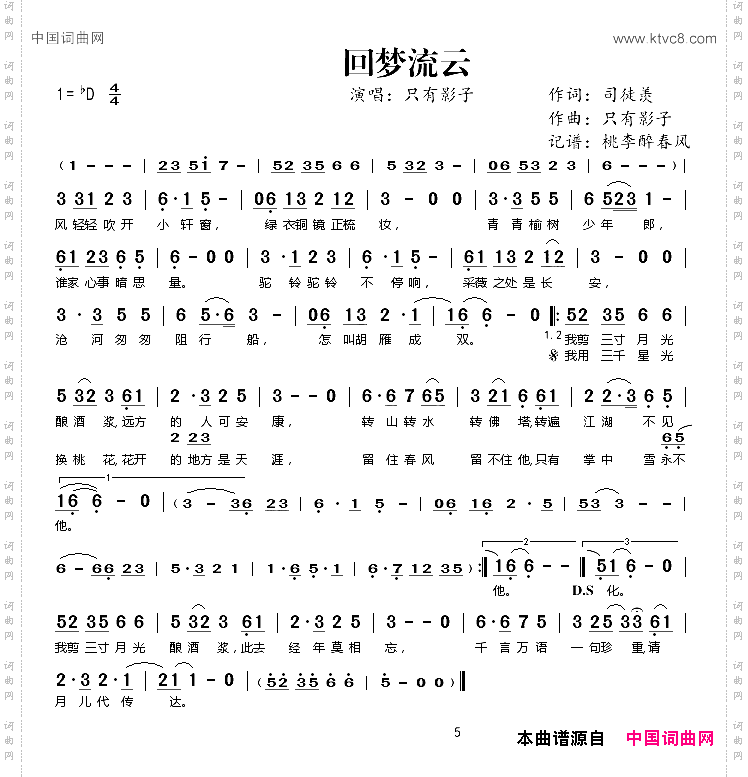 中国词曲网
www.ktvc8.com
回梦流云
1=♭D 4/4
演唱：只有影子
作词：司徒羡
作曲：只有影子
记谱：桃李醉春风
(1 - - - | 23 51 7 - | 52 35 6 6 | 5 - 3 - | 06 53 2 3 | 6 - - -) |
3 31 2 3 | 6·1 5 - | 06 13 2 12 | 3 - 0 0 | 3·3 5 5 | 6 523 1 - |
风 轻轻 吹 开 小 轩 窗， 绿 衣铜 镜 正梳 妆， 青 青 榆 树 少 年 郎，
61 23 6 5 | 6 - 0 0 | 3·1 2 3 | 6·1 5 - | 61 13 2 12 | 3 - 0 0 |
谁家 心事 暗 思 量。 驼 铃 驼 铃 不 停 响， 采薇 之处 是 长 安，
3·3 5 5 | 6 5·6 3 - | 06 13 2·1 | 16 6 - 0 |: 52 35 6 6 |
沧 河 匆 匆 阻 行 船， 怎 叫胡 雁 成 双。 1.2 我剪 三寸 月 光
𝄋 我用 三千 星 光
5 32 3 61 | 2·3 2 5 | 3 - - 0 | 6·6 7 65 | 3 21 6 61 | 2 2·3 6 5 |
酿 酒 浆，远方 的 人 可 安 康， 转 山 转 水 转 佛 塔，转遍 江 湖 不 见
2 2 23
6 5
换 桃 花，花开 的 地方 是 天 涯， 留 住 春 风 留 不住 他，只有 掌 中 雪 永不
1
16 6 - 0 | (3 - 36 23 | 6·1 5 - | 06 16 2·5 | 3 - - - |
他。
6 - 66 23 | 5·3 2 1 | 1·6 5·1 | 6·7 12 35) :|| 16 6 - - :|| 51 6 - 0 |
2
3
他。 D.S 化。
52 35 6 6 | 5 32 3 61 | 2·3 2 5 | 3 - - 0 | 6·6 7 5 | 3 25 33 61 |
我剪 三寸 月 光 酿 酒 浆，此去 经 年 莫 相 忘， 千 言 万 语 一 句珍 重，请
2·3 2·1 | 1 21 1 - 0 | (52 35 6 6 | 5 - 0 0) ||
月 儿 代 传 达。
5
本曲谱源自 中国词曲网